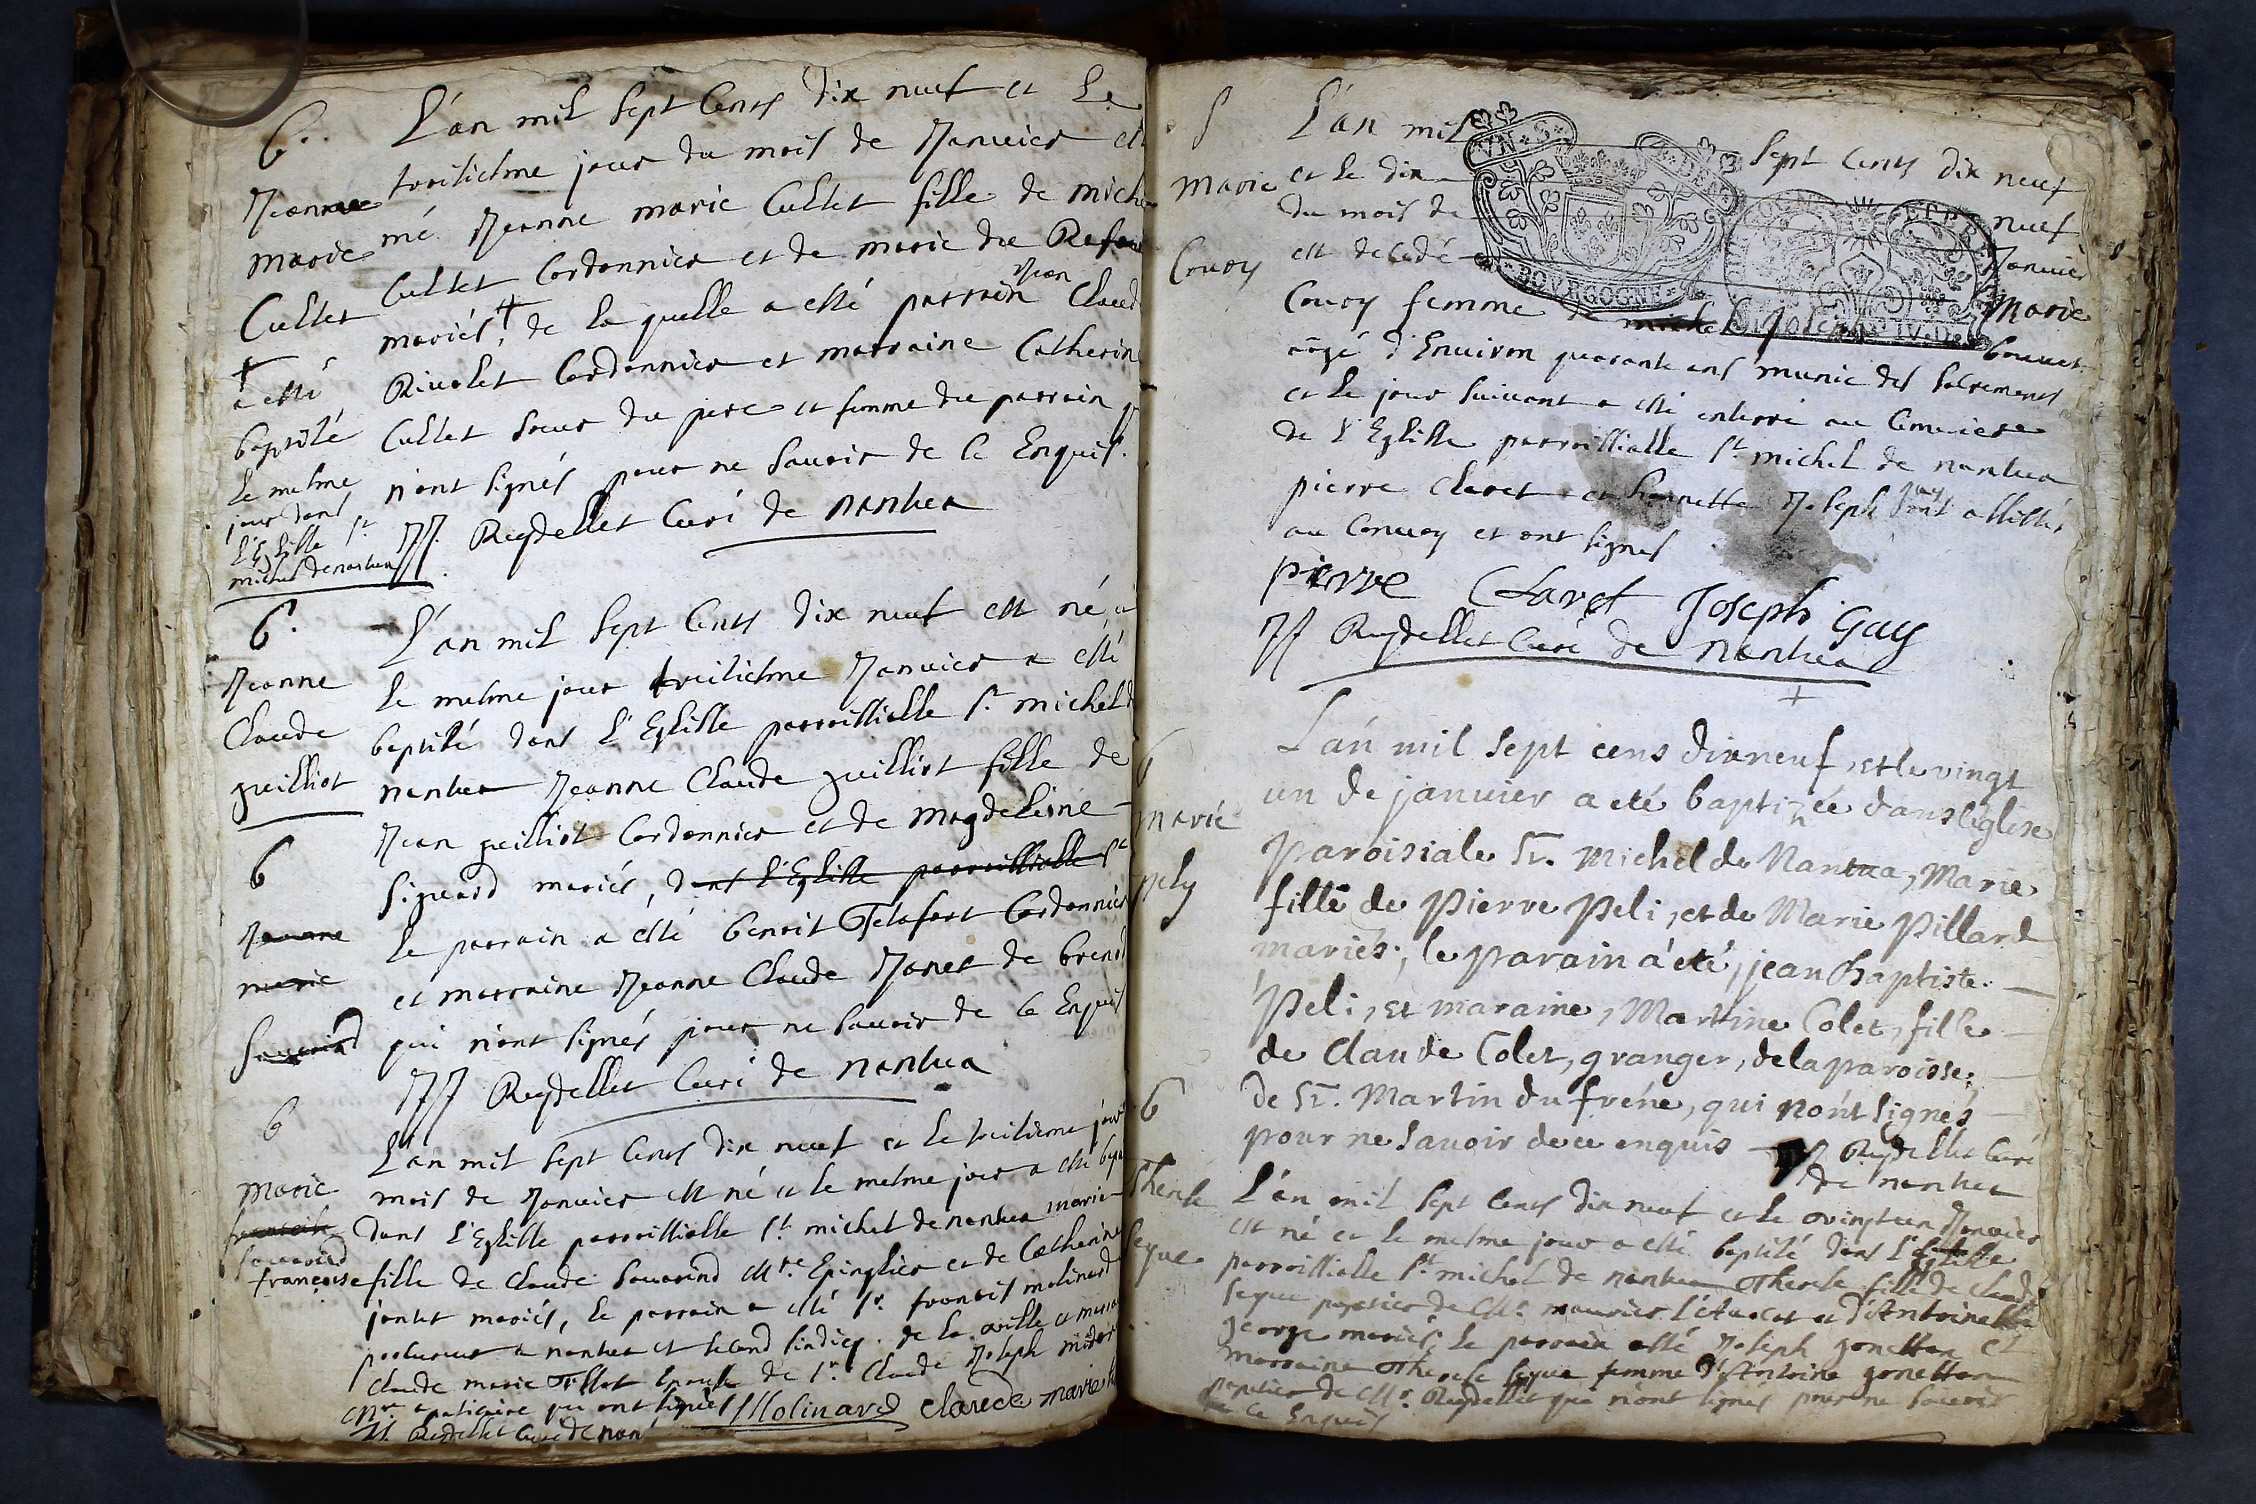 6.
Jeanne
marie
Cullet
+
a esté
baptisé
le mesme
jour dans
l'Eglisse St
michel de nantua
L'an mil sept Cents dix neuf et Le
treisiesme jour du mois de Janvier est
né Jeanne marie Cullet fille de miche
Cullet Cordonnier et de marie du
mariés, + de la quelle a esté parrain Jean Claud
Rivolet Cordonnier et marraine Catherine
Cullet soeur du pere et femme du parrain
n'ont signés pour ne savoir de ce Enquis.
JJ Reydellet Curé de nantua
6.
Jeanne
Claude
guilliot
L'an mil sept Cents dix neuf est né, et
le mesme jour treisiesme Janvier a esté
baptisé dans l'Eglisse parroissialle St michel d
nantua Jeanne Claude guilliot fille de
Jean guilliot Cordonnier et de magdeleine
Siguard mariés, dans l'Eglisse parroissialle St
le parrain a esté benoit Cordonnier
et marraine Jeanne Claude Janet de brenod
qui n'ont signés pour ne savoir de ce Enquis
JJ Reydellet Curé de nantua
6
Jeanne
marie
Savarind
6
marie
francoise
Savarind
françoise
L'an mil sept Cents dix neuf et le treisieme jour
mois de Janvier est né et le mesme jour a esté bap
dans l'Eglisse parroissialle St michel de nantua marie
fille de Claude Savarind Mtre Epinglier et de Catherine
jantet mariés, le parrain a esté Sr francois molinard
procureur a nantua et second sindicq de la ville et marra
Claude marie Tillot Epouse de Sr Claude Joseph
Mtre apoticaire qui ont signés Molinard Claude marie
JJ Reydellet Curé de nan
S
Marie
Convoy
L'an mil sept Cents dix neuf
et le dix neuf
du mois de Janvier
est decedé Marie
Convoy femme de michel Joseph bouvet
aagé d'Environ quarante ans munie des sacrements
et le jour suivant a esté enterré au Cimetiere
de l'Eglisse parroissialle St michel de nantua
pierre Claret et honnette Joseph gay ont assistés
au Convoy et ont signés
pierre Claret Joseph Gay
JJ Reydellet Curé de Nantua
VN·S· ·DEN
BOVRGOGNE
6
marie
pely
L'an mil sept cens dixneuf, et le vingt
un de janvier a eté baptizée dans l'église
paroisiale St. Michel de Nantua, Marie
fille de Pierre Peli, et de Marie Pillard
mariés; le parain a eté, jean Baptiste
Peli, et maraine, Martine Colet, fille
de Claude Colet, granger, de la paroisse
de St. Martin du frêne, qui n'ont signés
pour ne savoir de ce enquis JJ Reydellet Curé
de nantua
6
Therese
Seque
L'an mil sept Cents dix neuf et le vingt un Janvier
est né et le mesme jour a esté baptisé dans l'Eglisse
parroissialle St michel de nantua Therese fille de Claude
Seque papetier de Mr maurier l'Avocat et d'Antoinette
george mariés, le parrain esté Joseph gonettan et
marraine Therese Seque femme d'Antoine gonettan
papetier de Mr Reydellet qui n'ont signés pour ne savoir
de ce Enquis